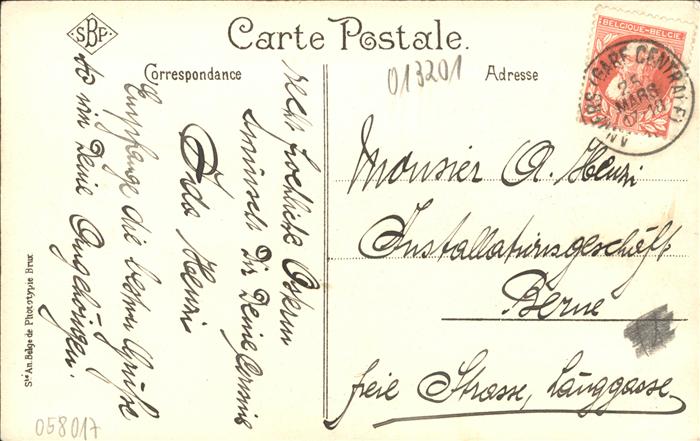 SBP
Carte Postale.
Correspondance
Adresse
013201
BELGIQUE-BELGIË
ANVERS (GARE CENTRALE)
25
MARS
Monsier A. Henri
Installationsgeschäft
Berne
freie Strasse, Länggasse
recht froehliche Ostern
wünscht Dir Deine Cousine
Ida Henri
Empfange die besten Grüsse
so wie Deine Angehörigen.
Sté An. Belge de Phototypie Brux
058017